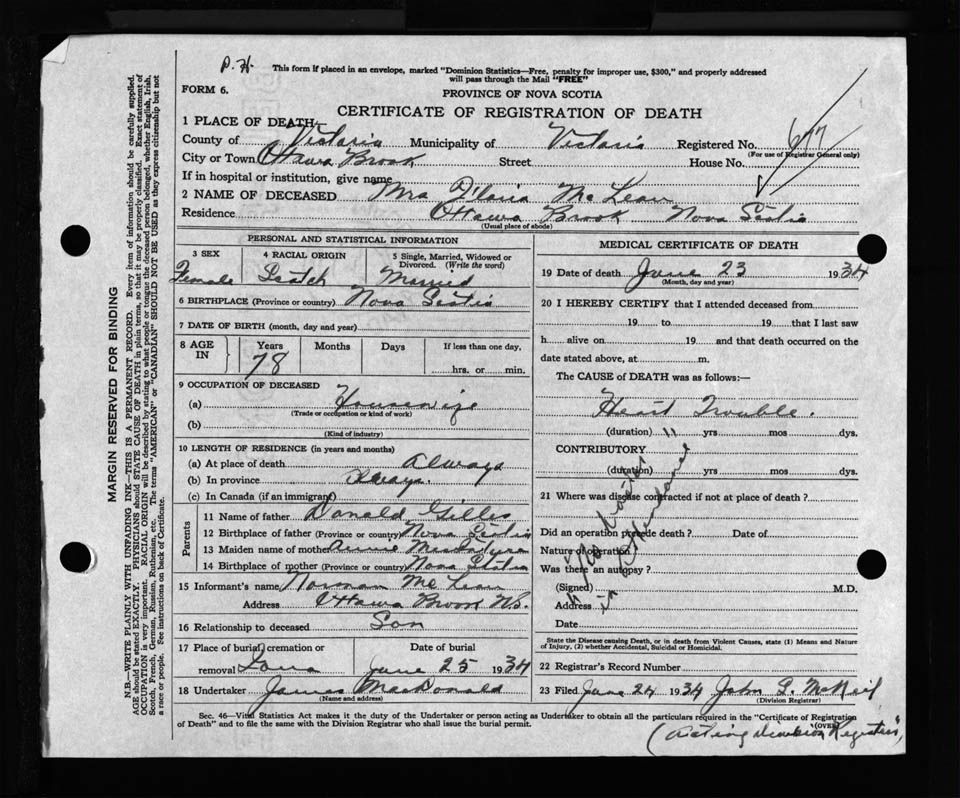 P. H.
This form if placed in an envelope, marked "Dominion Statistics—Free, penalty for improper use, $300," and properly addressed
will pass through the Mail "FREE"
FORM 6.
PROVINCE OF NOVA SCOTIA
CERTIFICATE OF REGISTRATION OF DEATH
1 PLACE OF DEATH
County of Victoria Municipality of Victoria Registered No. 677
(For use of Registrar General only)
City or Town Ottawa Brook Street House No.
If in hospital or institution, give name
2 NAME OF DECEASED Mrs McLean
Residence Ottawa Brook Nova Scotia
(Usual place of abode)
PERSONAL AND STATISTICAL INFORMATION
3 SEX 4 RACIAL ORIGIN 5 Single, Married, Widowed or
Divorced. (Write the word)
Female Scotch Married
6 BIRTHPLACE (Province or country) Nova Scotia
7 DATE OF BIRTH (month, day and year)
8 AGE IN Years Months Days If less than one day,
78 hrs. or min.
9 OCCUPATION OF DECEASED
(a) Housewife
(Trade or occupation or kind of work)
(b)
(Kind of industry)
10 LENGTH OF RESIDENCE (in years and months)
(a) At place of death Always
(b) In province Always.
(c) In Canada (if an immigrant)
Parents
11 Name of father Donald Gillis
12 Birthplace of father (Province or country) Nova Scotia
13 Maiden name of mother Annie
14 Birthplace of mother (Province or country) Nova Scotia
15 Informant's name Norman McLean
Address Ottawa Brook N.S.
16 Relationship to deceased Son
17 Place of burial, cremation or Date of burial
removal Iona June 25 1934
18 Undertaker James MacDonald
(Name and address)
MEDICAL CERTIFICATE OF DEATH
19 Date of death June 23 1934
(Month, day and year)
20 I HEREBY CERTIFY that I attended deceased from
19 to 19 that I last saw
h alive on 19 and that death occurred on the
date stated above, at m.
The CAUSE of DEATH was as follows:—
Heart Trouble.
(duration) 11 yrs mos dys.
CONTRIBUTORY
(duration) yrs mos dys.
21 Where was disease contracted if not at place of death ?
Did an operation precede death ? Date of
Nature of operation
Was there an autopsy ?
(Signed) M.D.
Address
Date
No Doctor
in attendance
State the Disease causing Death, or in death from Violent Causes, state (1) Means and Nature
of Injury, (2) whether Accidental, Suicidal or Homicidal.
22 Registrar's Record Number
23 Filed June 24 1934 John P. McNeil
(Division Registrar)
Sec. 46—Vital Statistics Act makes it the duty of the Undertaker or person acting as Undertaker to obtain all the particulars required in the "Certificate of Registration
of Death" and to file the same with the Division Registrar who shall issue the burial permit.
(OVER)
(Acting Division Registrar)
MARGIN RESERVED FOR BINDING
N.B.—WRITE PLAINLY WITH UNFADING INK—THIS IS A PERMANENT RECORD. Every item of information should be carefully supplied.
AGE should be stated EXACTLY. PHYSICIANS should STATE CAUSE OF DEATH in plain terms, so that it may be properly classified. Exact statement of
OCCUPATION is very important. RACIAL ORIGIN will be described by stating to what people or tongue the deceased person belonged, whether English, Irish,
Scotch, French, German, Russian, Ruthenian, etc. The terms "AMERICAN" or "CANADIAN" SHOULD NOT BE USED as they express citizenship but not
a race or people. See instructions on back of Certificate.